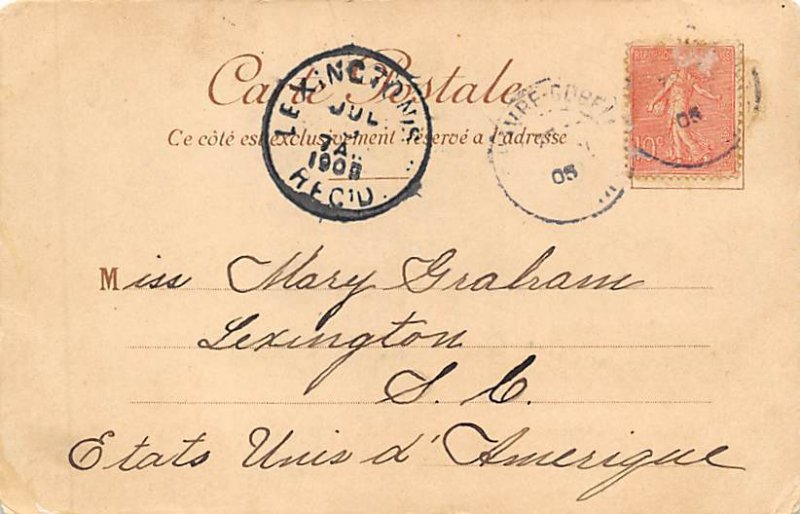 Carte Postale
Ce côté est exclusivement réservé a l'adresse
LEXINGTON
JUL
7A
190
REC'D.
05
05
10c
Miss Mary Graham
Lexington
S. C.
Etats Unis d'Amerique